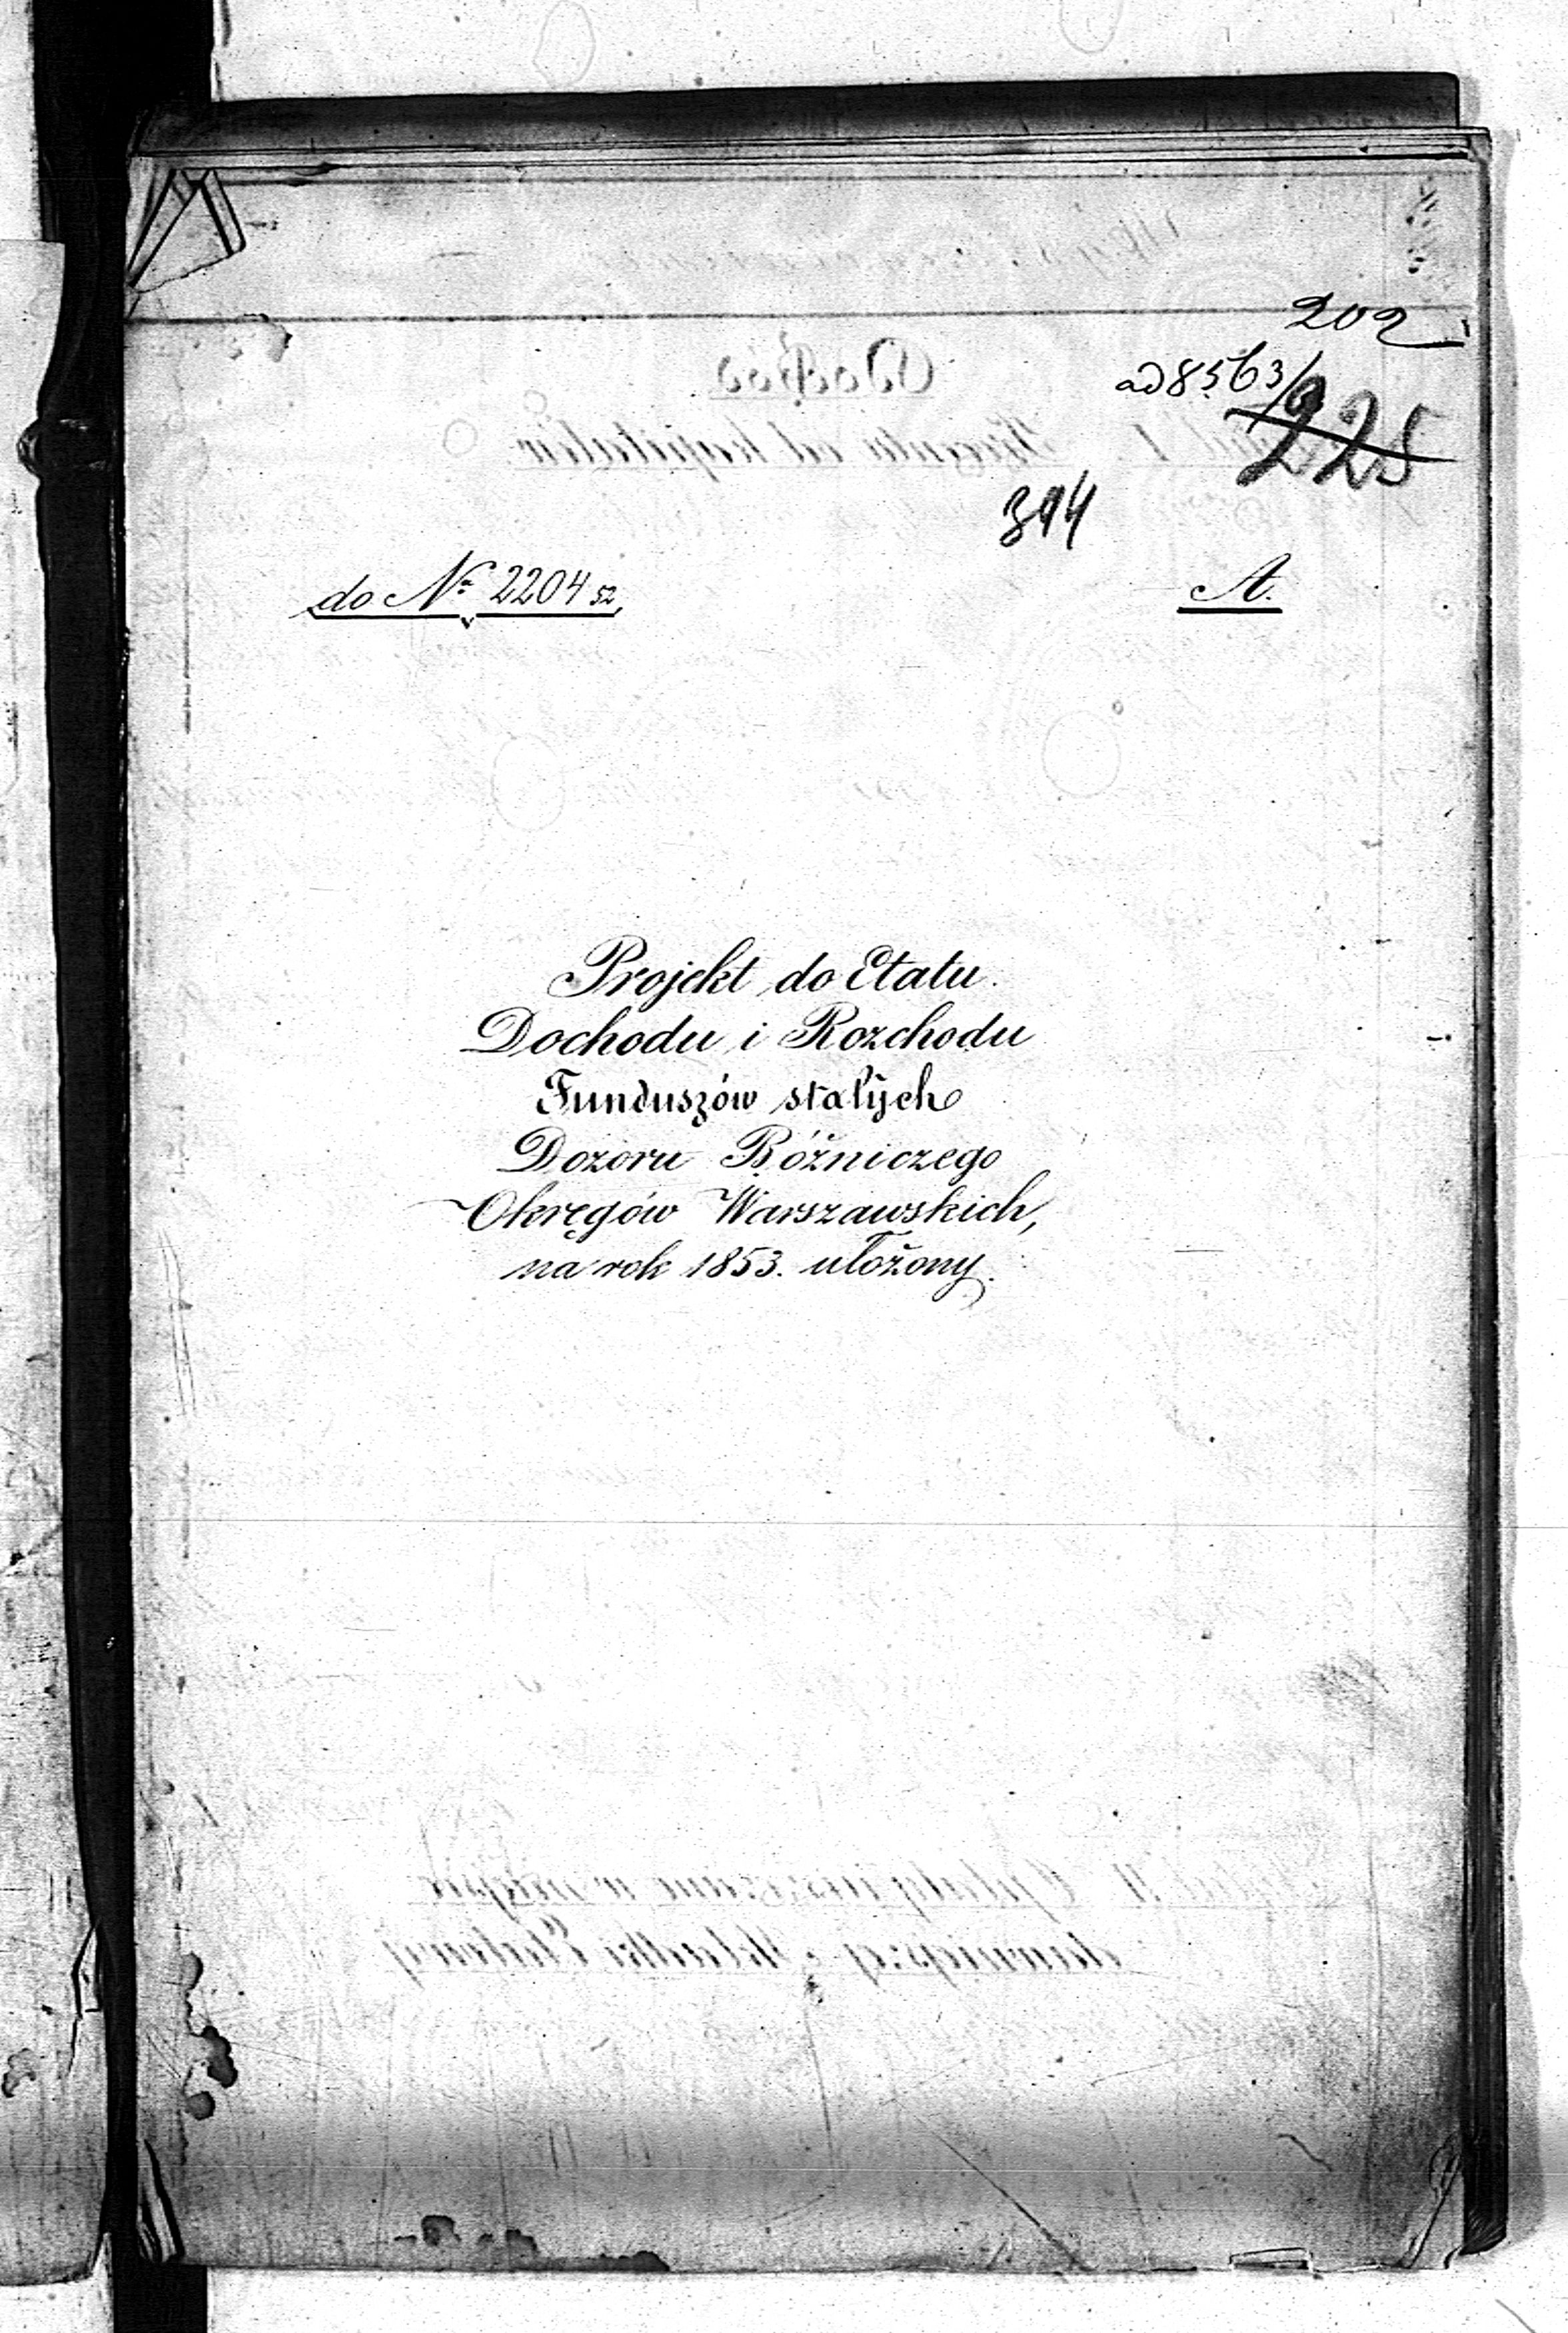 202
ad 8563/
225
394
do № 2204 52
A.
Projekt do Etatu
Dochodu i Rozchodu
Funduszów stałych
Dozoru Bóżniczego
Okręgów Warszawskich,
na rok 1853. ułożony.